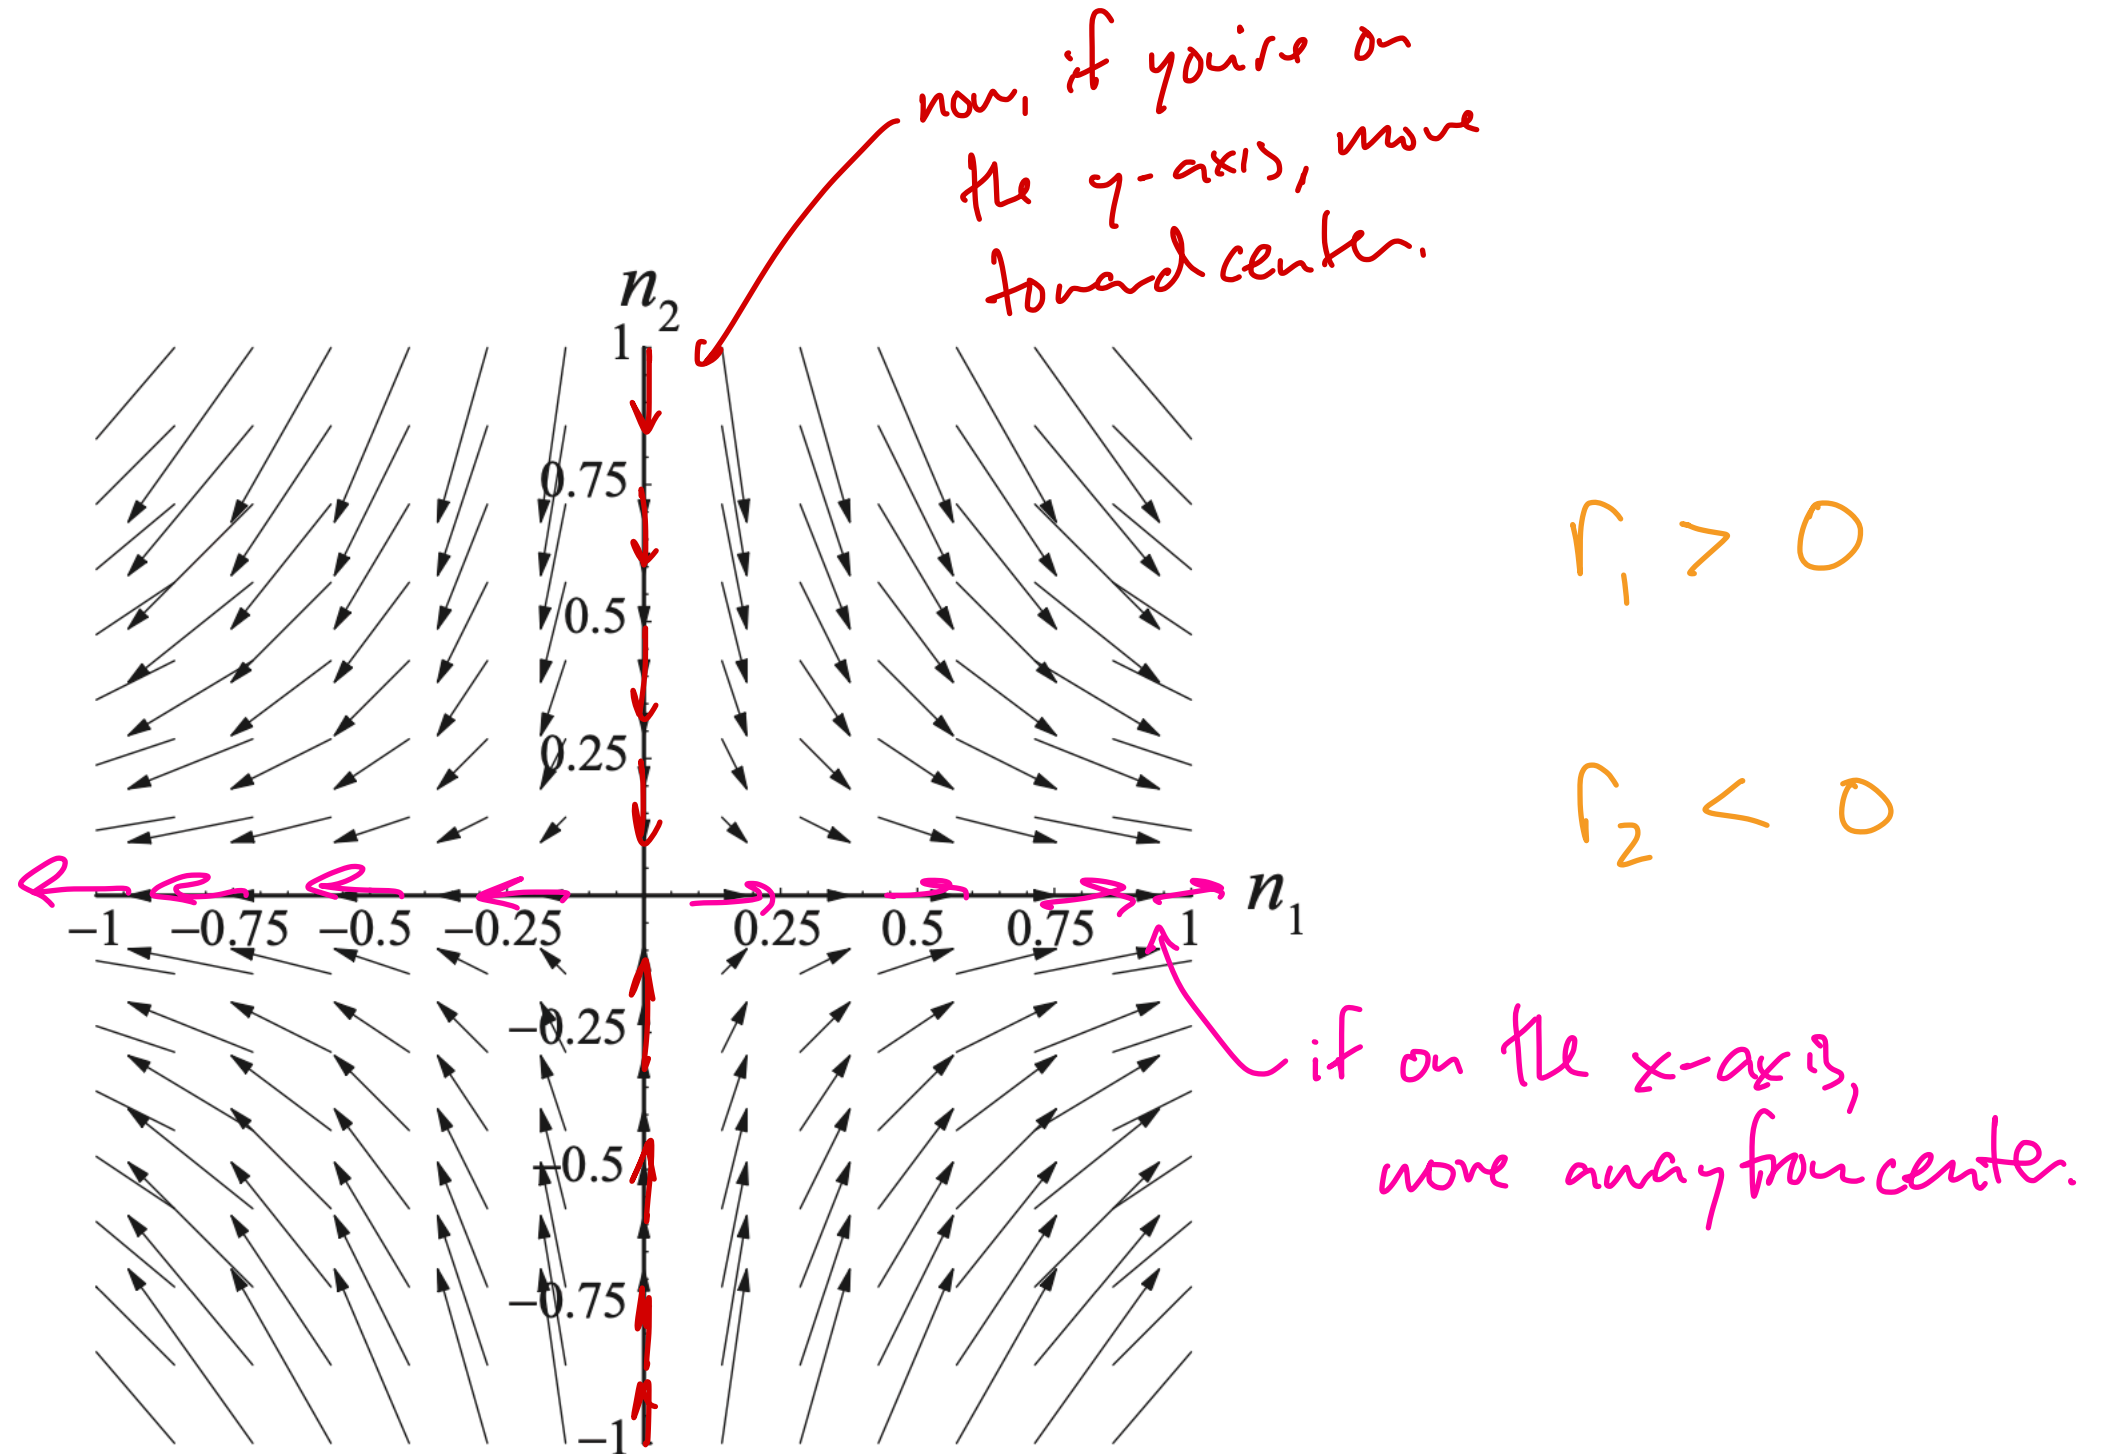 now, if you're on
the y-axis, move
toward center.
n₂
1
0.75
0.5
0.25
r₁ > 0
r₂ < 0
n₁
−1 −0.75 −0.5 −0.25 0.25 0.5 0.75 1
−0.25
−0.5
−0.75
−1
if on the x-axis,
move away from center.